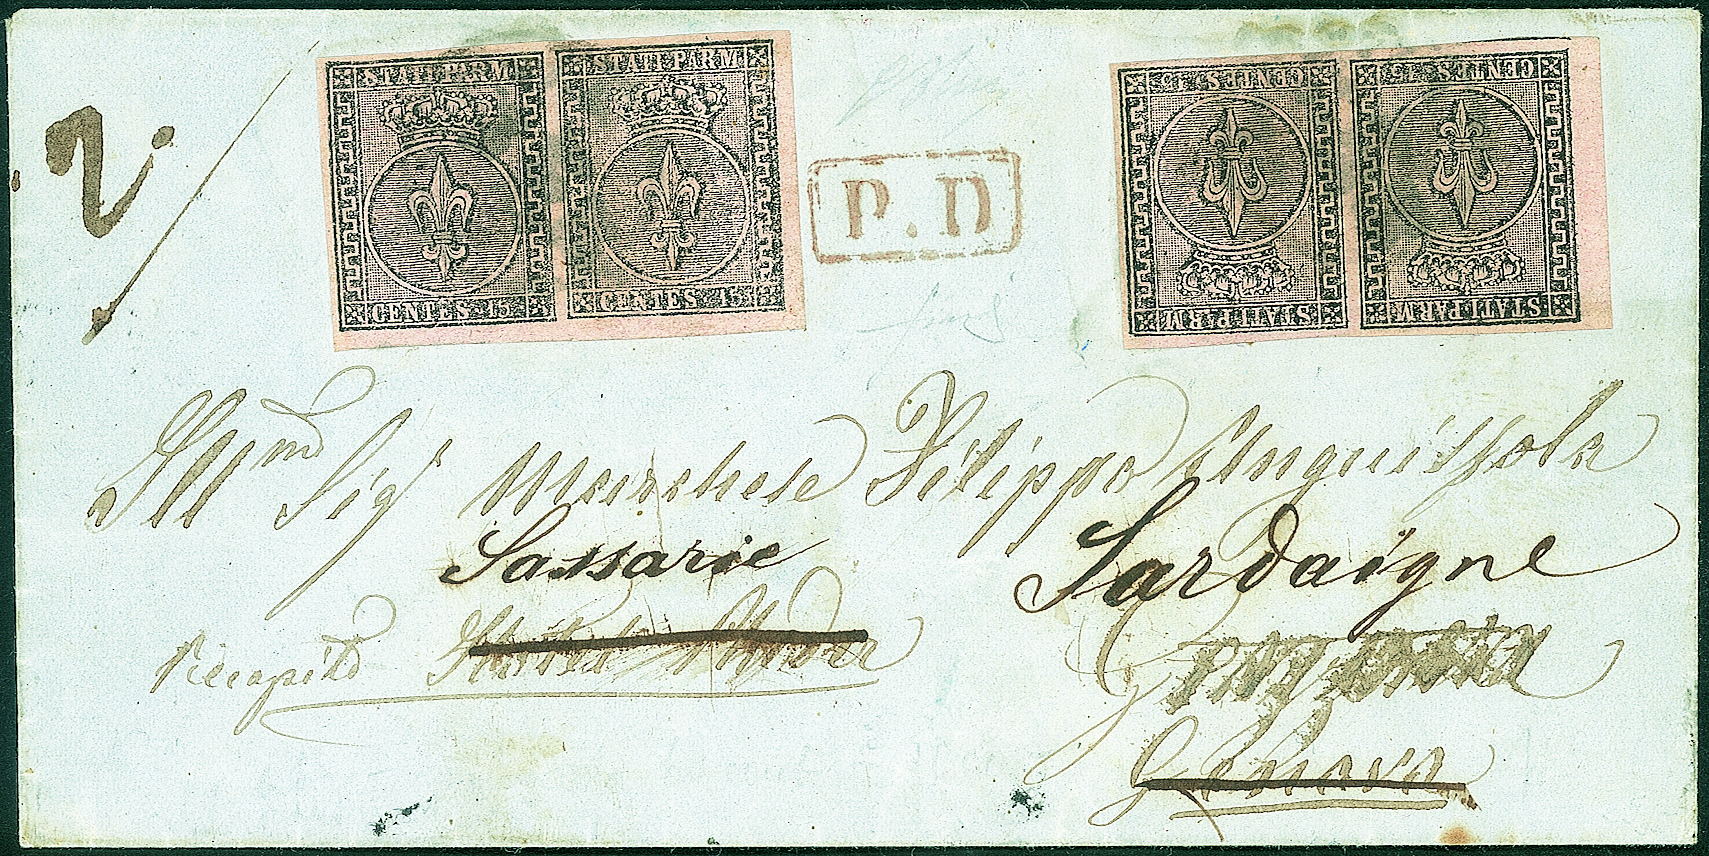 2.
STATI PARM STATI PARM
CENTES. 15 CENTES. 15
P.D
CENTES. 15 CENTES. 15
STATI PARM STATI PARM
Ill.mo Sig.r Marchese Filippo Anguissola
Sassarie Sardaigne
Recapito
Genova